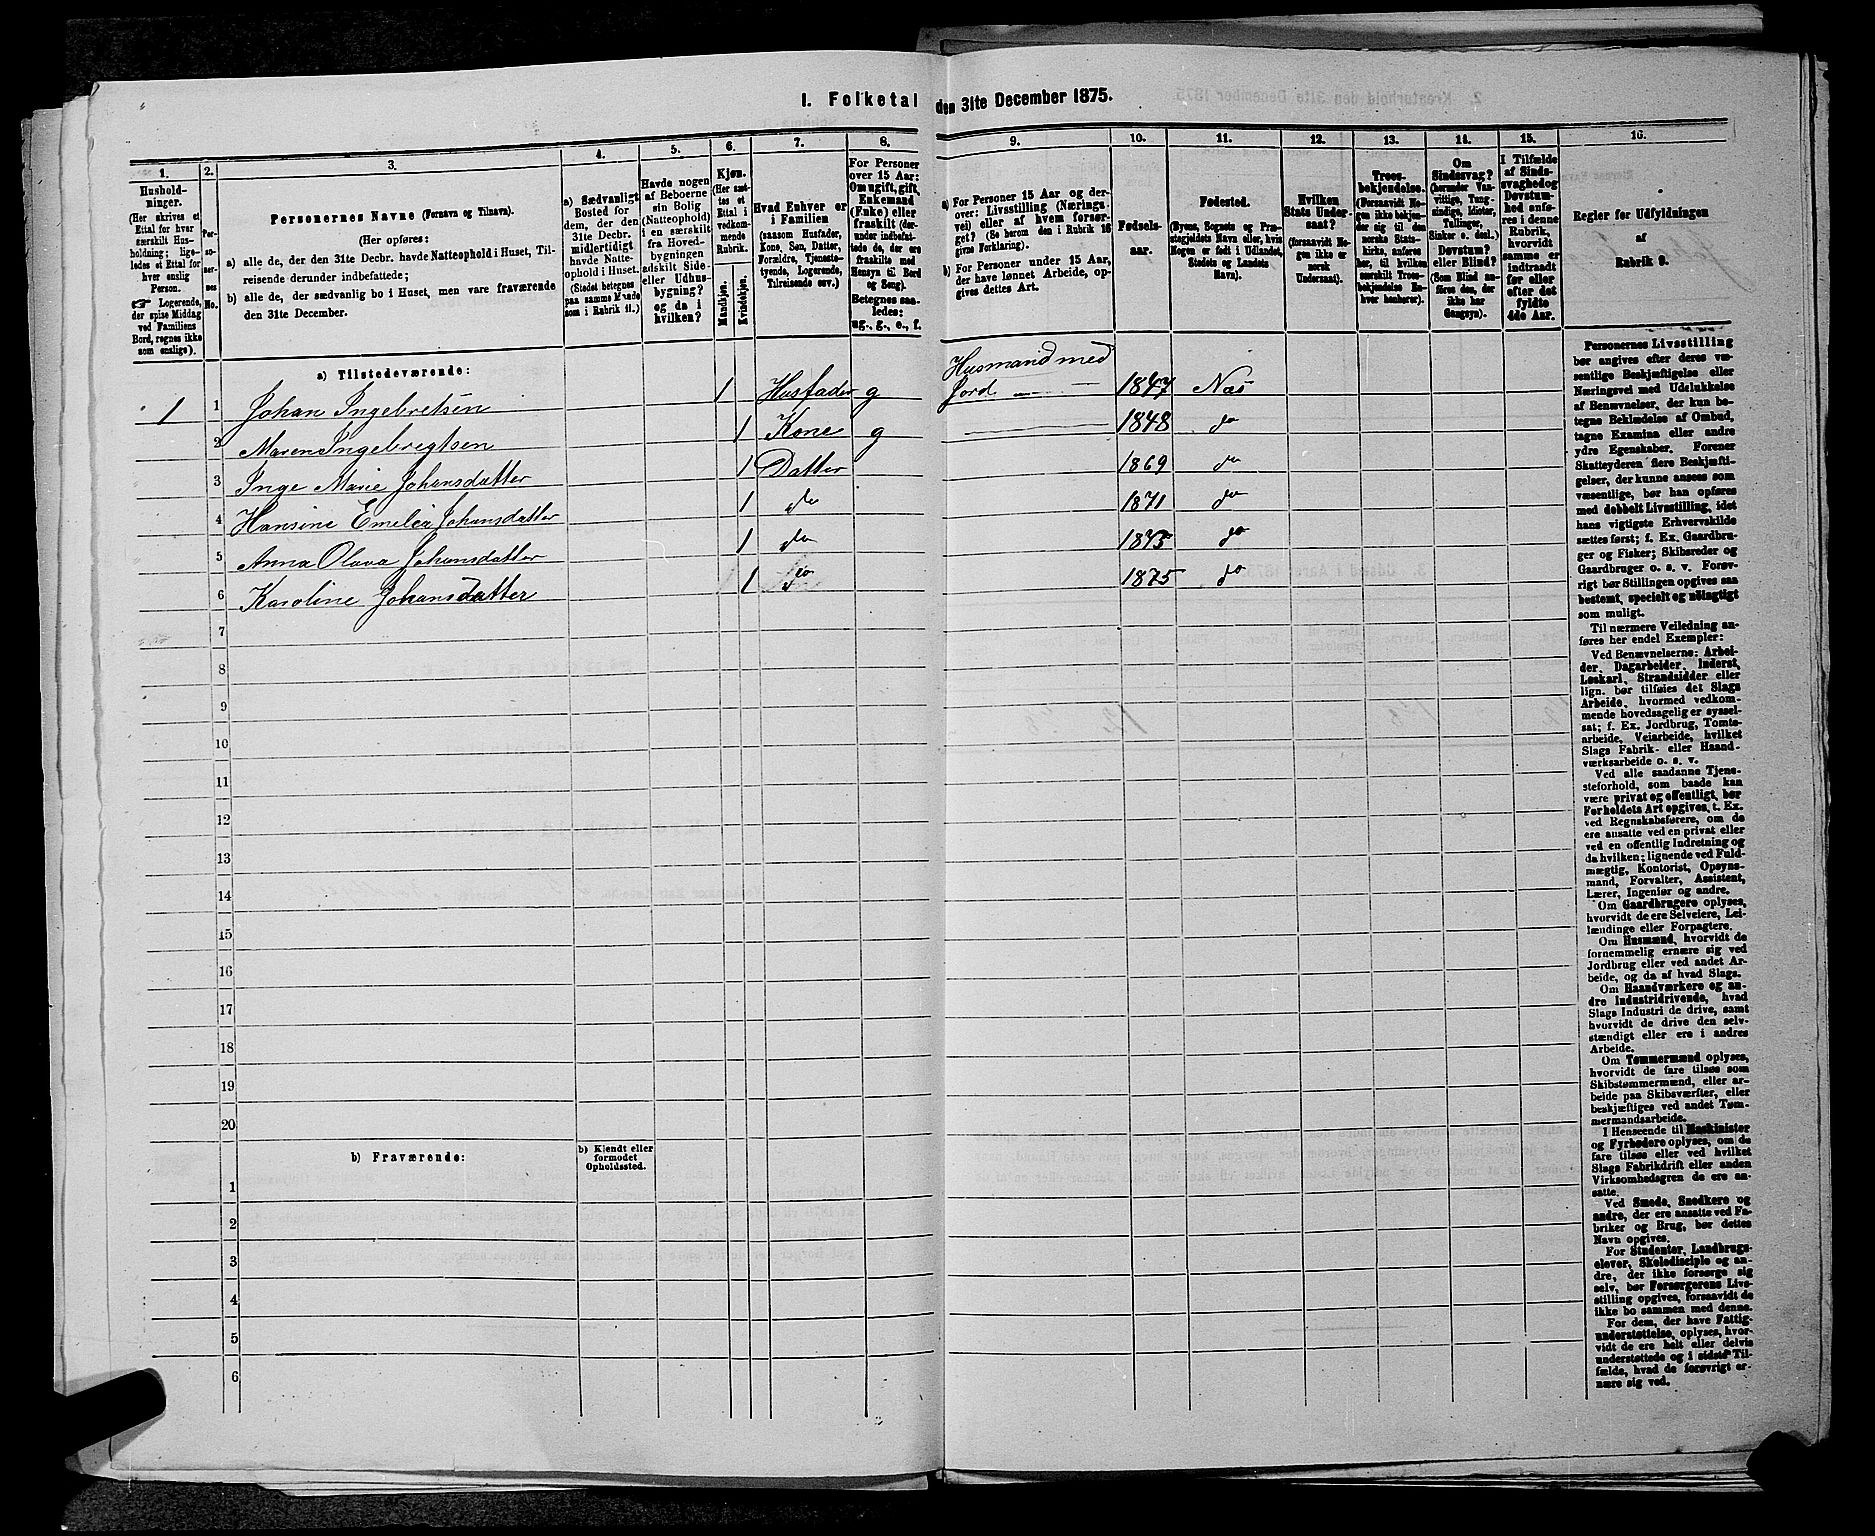 I. Folketal den 31te December 1875.
1.
Hushold-
ninger.
(Her skrives et
Ettal for hver
særskilt Hus-
holdning; lige-
ledes et Ettal for
hver enslig
Person.
☞ Logerende,
der spise Middag
ved Familiens
Bord, regnes ikke
som enslige).
2.
Per-
so-
ner-
nes
No.
3.
Personernes Navne (Fornavn og Tilnavn).
(Her opføres:
a) alle de, der den 31te Decbr. havde Natteophold i Huset, Til-
reisende derunder indbefattede;
b) alle de, der sædvanlig bo i Huset, men vare fraværende
den 31te December.
4.
a) Sædvanligt
Bosted for
dem, der den
31te Decbr.
midlertidigt
havde Natte-
ophold i Huset.
(Stedet betegnes
paa samme Maade
som i Rubrik 11.)
5.
Havde nogen
af Beboerne
sin Bolig
(Natteophold)
i en særskilt
fra Hoved-
bygningen
adskilt Side-
eller Udhus-
bygning?
og da i
hvilken?
6.
Kjøn.
(Her sæt-
tes et
Ettal i
vedkom-
mende
Rubrik.
Mandkjøn.
Kvindekjøn.
7.
Hvad Enhver er
i Familien
(saasom Husfader,
Kone, Søn, Datter,
Forældre, Tjeneste-
tyende, Logerende,
Tilreisende osv.)
8.
For Personer
over 15 Aar:
Om ugift, gift,
Enkemand
(Enke) eller
fraskilt (der-
under indbefat-
tede de, der ere
fraskilte med
Hensyn til Bord
og Seng).
Betegnes saa-
ledes:
ug., g., e., f.
9.
a) For Personer 15 Aar og der-
over: Livsstilling (Nærings-
vei) eller af hvem forsør-
get? (Se herom den i Rubrik 16
givne Forklaring).
b) For Personer under 15 Aar,
der have lønnet Arbeide, op-
gives dettes Art.
10.
Fødsels-
aar.
11.
Fødested.
(Byens, Sognets og Præ-
stegjeldets Navn eller, hvis
Nogen er født i Udlandet,
Stedets og Landets
Navn).
12.
Hvilken
Stats Under-
saat?
(forsaavidt No-
gen ikke er
norsk
Undersaat).
13.
Troes-
bekjendelse.
(Forsaavidt No-
gen ikke bekjen-
der sig til den
norske Stats-
kirka, anføres
her, til hvilken
særskilt Troes-
bekjendelse En-
hver henhører).
14.
Om
Sindssvag?
(herunder Van-
vittige, Tung-
sindige, Idioter,
Tullinger,
Sinker o. desl.)
Døvstum?
eller Blind?
(Som Blind an-
føres den, der
ikke har
Gangsyn).
15.
I Tilfælde
af Sinds-
svaghed og
Døvstum-
hed anfø-
res i denne
Rubrik,
hvorvidt
samme er
indtraadt
før eller
efter det
fyldte
4de Aar.
16.
Regler for Udfyldningen
af
Rubrik 9.
a) Tilstedeværende:
Husmand med
1 1 Johan Ingebretsen 1 Husfader g Jord 1847 Næs
2 Maren Ingebregtsen 1 Kone g 1848 do
3 Inge Marie Johansdatter 1 Datter 1869 do
4 Hansine Emelia Johansdatter 1 do 1871 do
5 Anna Olava Johansdatter 1 do 1873 do
6 Karoline Johansdatter 1 do 1875 do
7
8
9
10
11
12
13
14
15
16
17
18
19
20
b) Fraværende:
b) Kjendt eller
formodet
Opholdssted.
1
2
3
4
5
6
Personernes Livsstilling
bør angives efter deres væ-
sentlige Beskjæftigelse eller
Næringsvei med Udelukkelse
af Benævnelser, der kun be-
tegne Beklædelse af Ombud,
tagne Examina eller andre
ydre Egenskaber. Forener
Skatteyderen flere Beskjæfti-
gelser, der kunne ansees som
væsentlige, bør han opføres
med dobbelt Livsstilling, idet
hans vigtigste Erhvervskilde
sættes først; f. Ex. Gaardbru-
ger og Fisker; Skibsreder og
Gaardbruger o. s. v. Forøv-
rigt bør Stillingen opgives saa
bestemt, specielt og nøiagtigt
som muligt.
Til nærmere Veiledning an-
føres her endel Exempler:
Ved Benævnelserne: Arbei-
der, Dagarbeider, Inderst,
Løskarl, Strandsidder eller
lign. bør tilføies det Slags
Arbeide, hvormed vedkom-
mende hovedsagelig er syssel-
sat; f. Ex. Jordbrug, Tomte-
arbeide, Veiarbeide, hvilket
Slags Fabrik- eller Haand-
værksarbeide o. s. v.
Ved alle saadanne Tjene-
steforhold, som baade kan
være privat og offentligt, bør
Forholdets Art opgives, t. Ex.
ved Regnskabsførere, om de
ere ansatte ved en privat eller
ved en offentlig Indretning og
da hvilken; lignende ved Fuld-
mægtig, Kontorist, Opsyns-
mand, Forvalter, Assistent,
Lærer, Ingeniør og andre.
Om Gaardbrugere oplyses,
hvorvidt de ere Selveiere, Lei-
lændinge eller Forpagtere.
Om Husmænd, hvorvidt de
fornemmelig ernære sig ved
Jordbrug eller ved andet Ar-
beide, og da af hvad Slags.
Om Haandværkere og an-
dre Industridrivende, hvad
Slags Industri de drive, samt
hvorvidt de drive den selv-
stændigt eller ere i andres
Arbeide.
Om Tømmermænd oplyses,
hvorvidt de fare tilsøs som
Skibstømmermænd, eller ar-
beide paa Skibsværfter, eller
beskjæftiges ved andet Tøm-
mermandsarbeide.
I Henseende til Maskinister
og Fyrbødere oplyses, om de
fare tilsøs eller ved hvilket
Slags Fabrikdrift eller anden
Virksomhedsgren de ere an-
satte.
Ved Smede, Snedkere og
andre, der ere ansatte ved Fa-
briker og Brug, bør dettes
Navn opgives.
For Studenter, Landbrugs-
elever, Skoledisciple og an-
dre, der ikke forsørge sig
selv, bør Forsørgerens Livs-
stilling opgives, forsaavidt de
ikke bo sammen med denne.
For dem, der have Fattig-
understøttelse, oplyses, hvor-
vidt de ere helt eller delvis
understøttede og i sidste Til-
fælde, hvad de forøvrigt er-
nære sig ved.